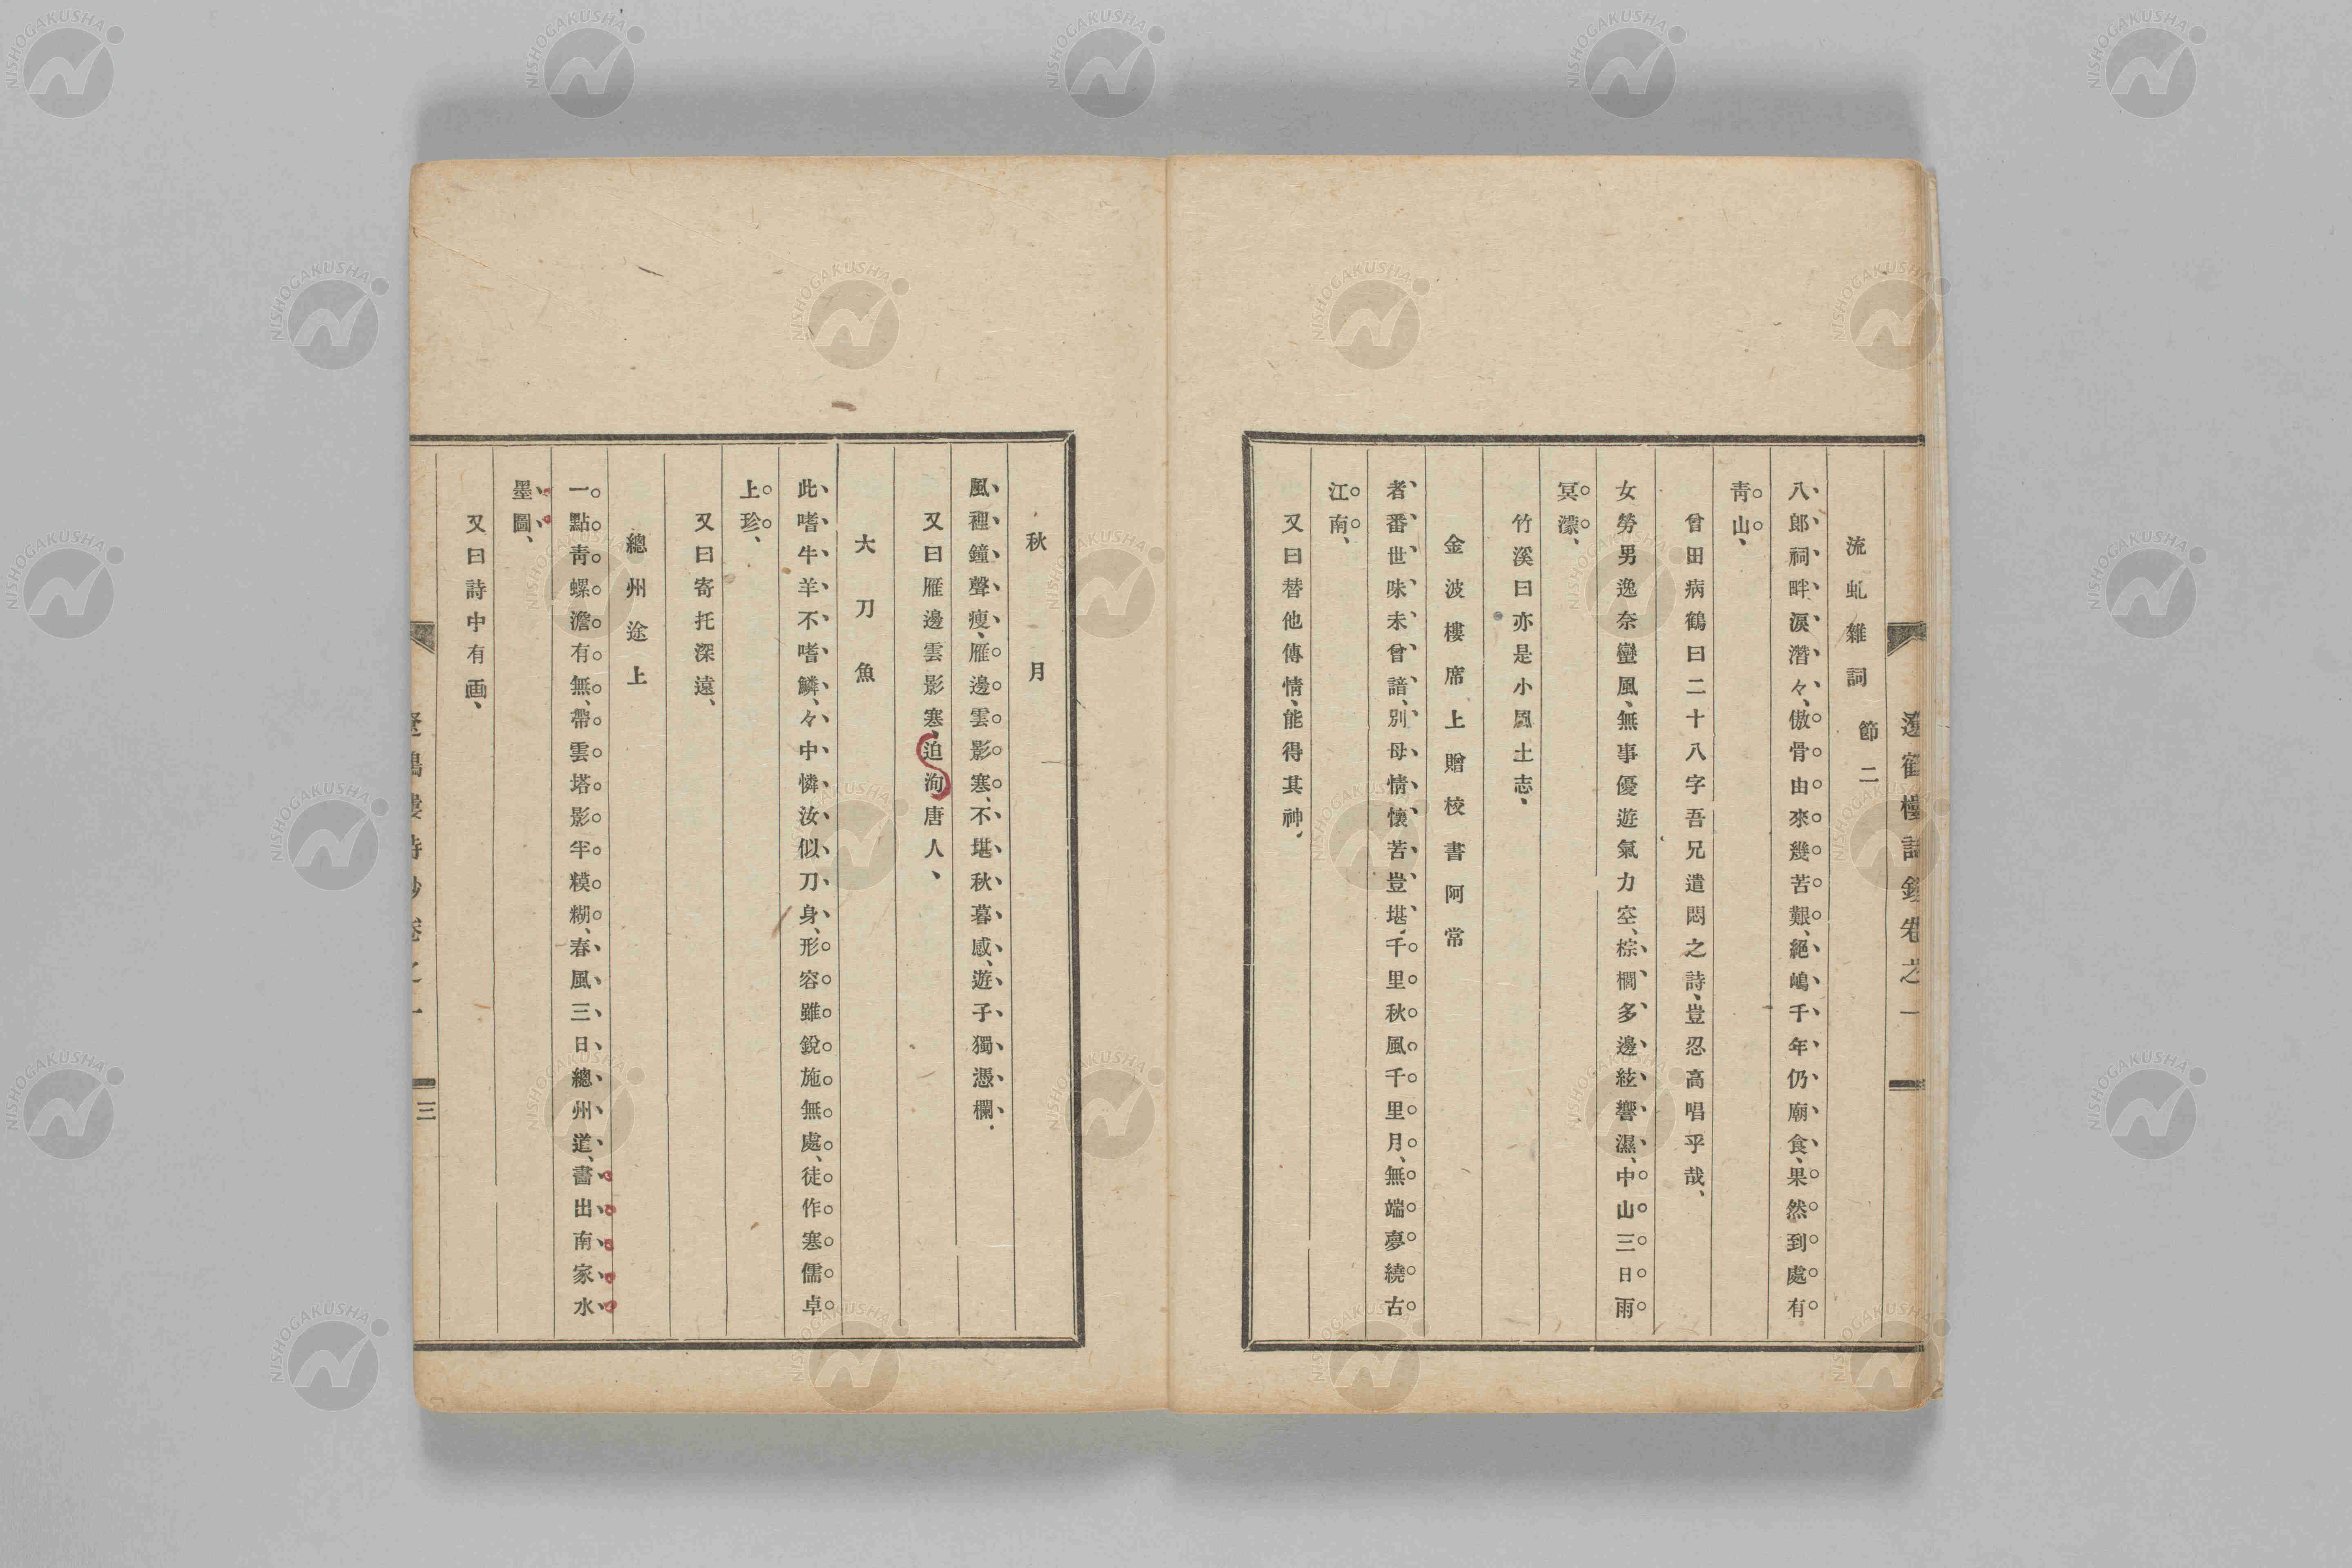 遼鶴樓詩鈔卷之一
流虬雜詞 節二
八郎祠畔淚潸々、傲骨由來幾苦艱、絕嶋千年仍廟食、果然到處有
靑山、
曾田病鶴曰二十八字吾兄遣悶之詩、豈忍高唱乎哉、
女勞男逸奈蠻風、無事優遊氣力空、棕櫚多邊絃響濕、中山三日雨
冥濛、
竹溪曰亦是小風土志、
金波樓席上贈校書阿常
者番世味未曾諳、別母情懷苦豈堪、千里秋風千里月、無端夢繞古
江南、
又曰替他傳情、能得其神、
秋月
風裡鐘聲瘦、雁邊雲影寒、不堪秋暮感、遊子獨憑欄、
又曰雁邊雲影寒、迫洵唐人、
大刀魚
此嗜牛羊不嗜鱗、々中憐汝似刀身、形容雖銳施無處、徒作寒儒卓
上珍、
又曰寄托深遠、
總州途上
一點靑螺澹有無、帶雲塔影半糢糊、春風三日總州道、畵出南家水
墨圖、
又曰詩中有画、
三
NISHOGAKUSHA